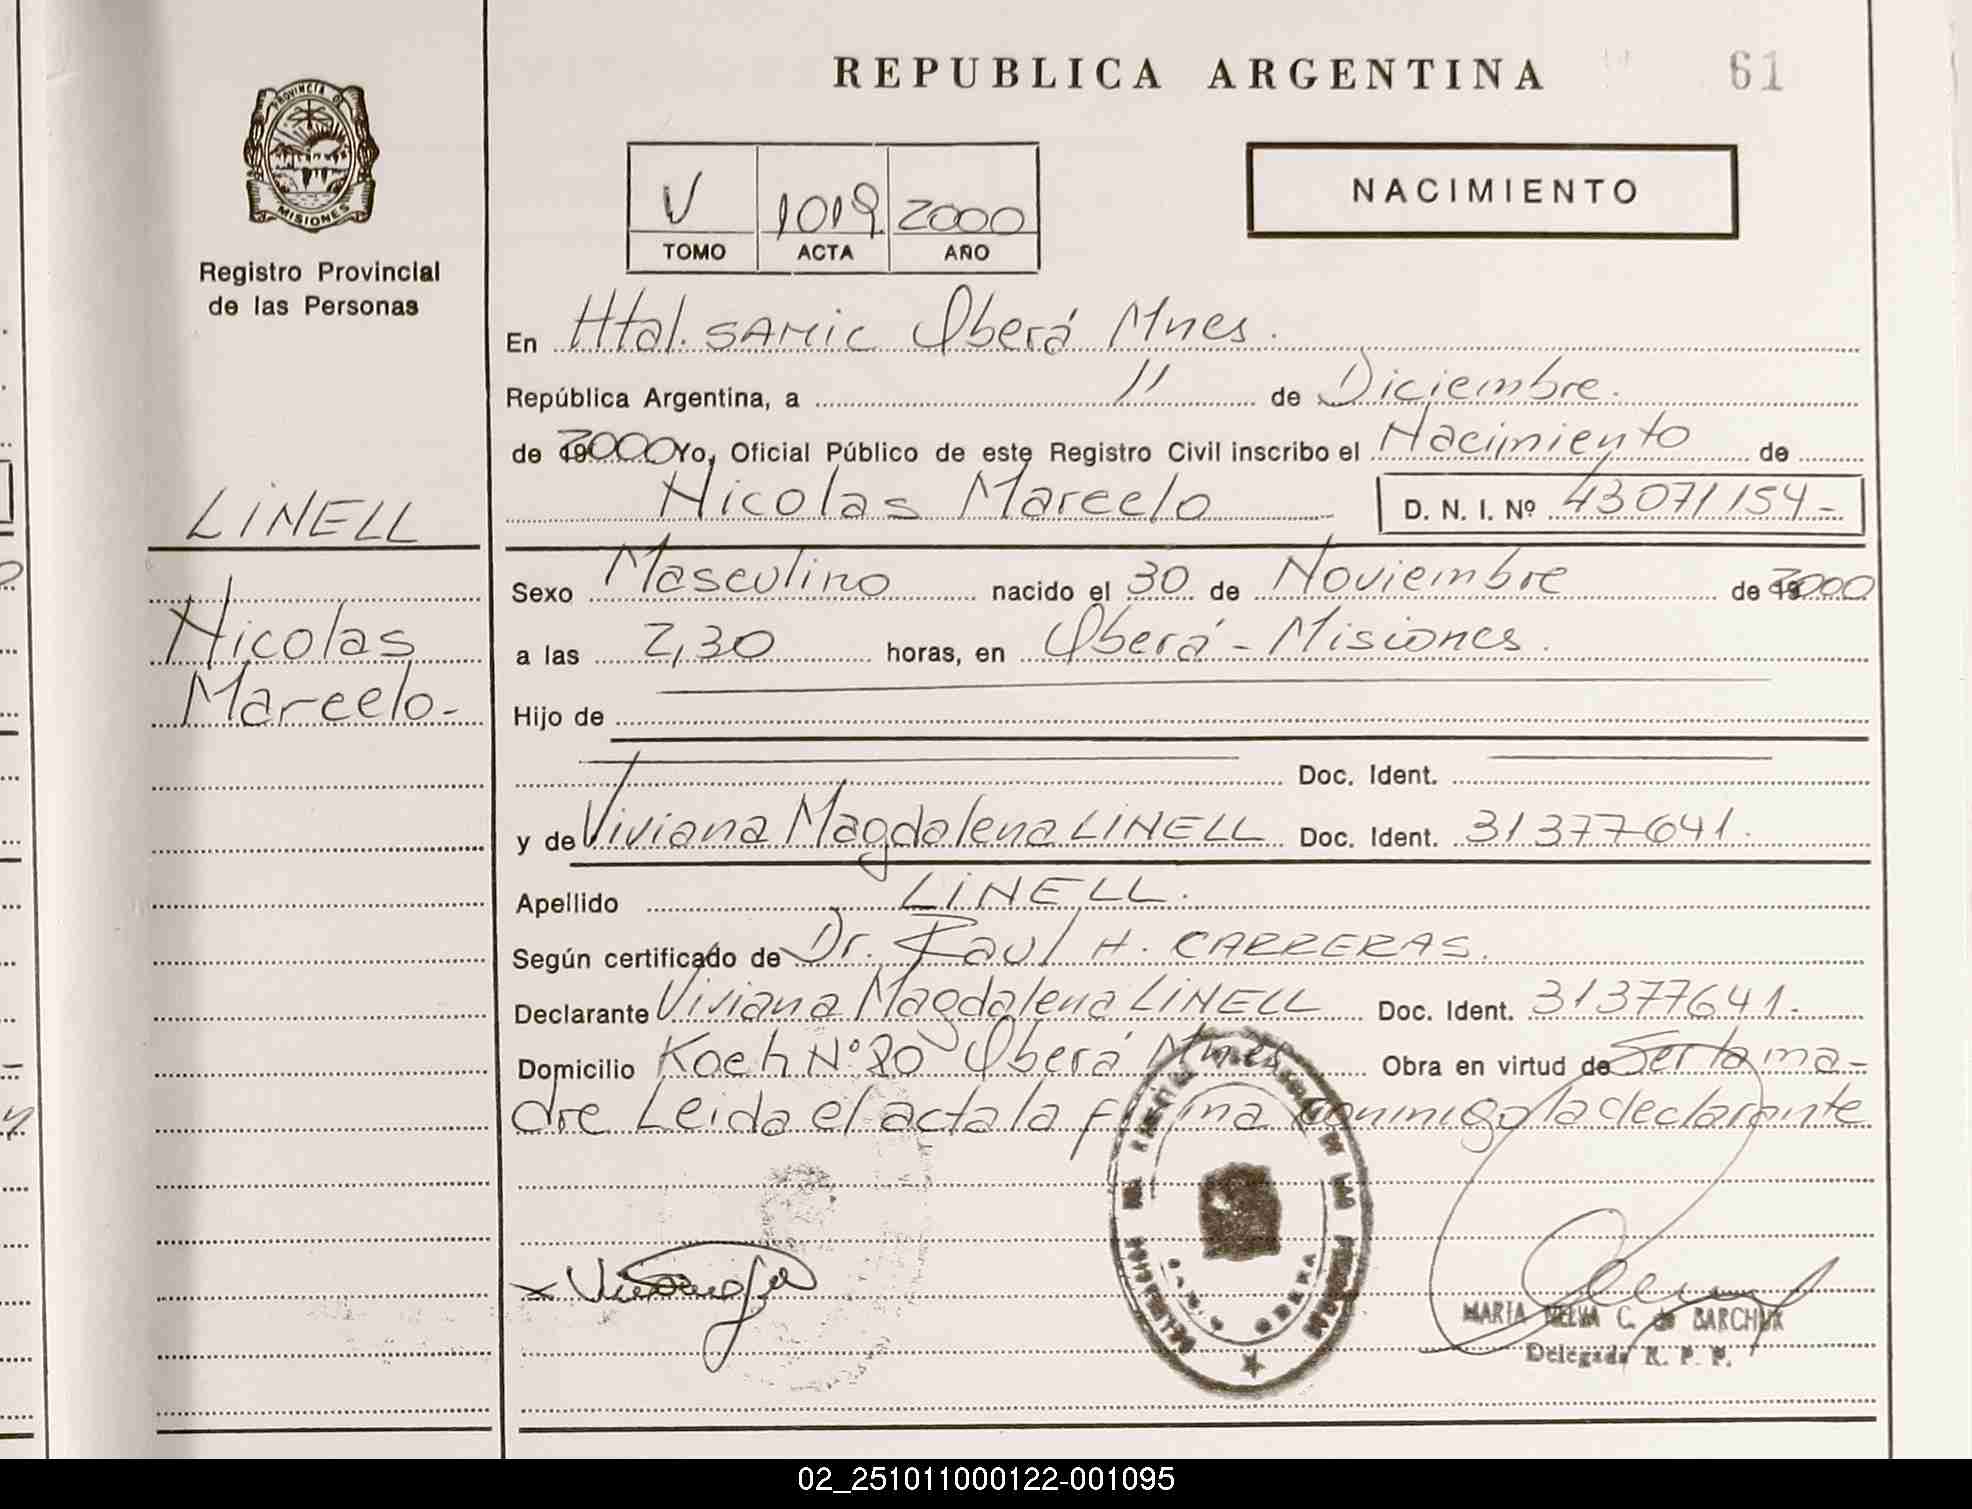 REPUBLICA ARGENTINA
61
PROVINCIA DE
MISIONES
Registro Provincial
de las Personas
V 1019 2000
TOMO ACTA AÑO
NACIMIENTO
En Htal. SAMIC Oberá Mnes.
República Argentina, a 11 de Diciembre.
de 2000 Yo, Oficial Público de este Registro Civil inscribo el Nacimiento de
Nicolas Marcelo D. N. I. Nº 43071154-
LINELL
Nicolas
Marcelo-
Sexo Masculino nacido el 30 de Noviembre de 2000
a las 2,30 horas, en Oberá - Misiones.
Hijo de
Doc. Ident.
y de Viviana Magdalena LINELL Doc. Ident. 31377641.
Apellido LINELL.
Según certificado de Dr. Raul H. CARRERAS.
Declarante Viviana Magdalena LINELL Doc. Ident. 31377641.
Domicilio Koch Nº 20 Oberá Mnes Obra en virtud de Ser la ma-
dre Leida el acta la firma conmigo la declarante
DE LAS PERSONAS
OBERA
MARTA NELVA C. de BARCHUK
Delegada R. P. P.
02_251011000122-001095